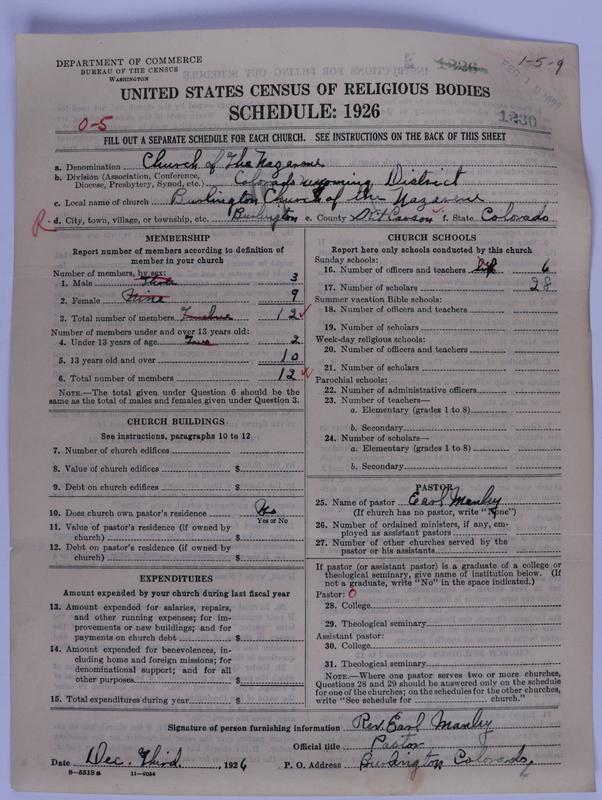 DEPARTMENT OF COMMERCE
BUREAU OF THE CENSUS
WASHINGTON
1926
1-5-9
UNITED STATES CENSUS OF RELIGIOUS BODIES
SCHEDULE: 1926
1230
0-5
FILL OUT A SEPARATE SCHEDULE FOR EACH CHURCH. SEE INSTRUCTIONS ON THE BACK OF THIS SHEET
a. Denomination Church of The Nazarene
b. Division (Association, Conference, Diocese, Presbytery, Synod, etc.) Colorado wyoming District
c. Local name of church Burlington Church of the Nazarene
R d. City, town, village, or township, etc. Burlington e. County Kit Carson f. State Colorado
MEMBERSHIP
Report number of members according to definition of
member in your church
Number of members, by sex:
1. Male Three 3
2. Female Nine 9
3. Total number of members Twelve 12
Number of members under and over 13 years old:
4. Under 13 years of age Two 2
5. 13 years old and over 10
6. Total number of members 12
NOTE.—The total given under Question 6 should be
same as the total of males and females given under Question 3.
CHURCH BUILDINGS
See instructions, paragraphs 10 to 12
7. Number of church edifices
8. Value of church edifices $
9. Debt on church edifices $
10. Does church own pastor's residence No
Yes or No
11. Value of pastor's residence (if owned by
church) $
12. Debt on pastor's residence (if owned by
church) $
EXPENDITURES
Amount expended by your church during last fiscal year
13. Amount expended for salaries, repairs,
and other running expenses; for im-
provements or new buildings; and for
payments on church debt $
14. Amount expended for benevolences, in-
cluding home and foreign missions; for
denominational support; and for all
other purposes $
15. Total expenditures during year $
CHURCH SCHOOLS
Report here only schools conducted by this church
Sunday schools:
16. Number of officers and teachers 6
17. Number of scholars 28
Summer vacation Bible schools:
18. Number of officers and teachers
19. Number of scholars
Week-day religious schools:
20. Number of officers and teachers
21. Number of scholars
Parochial schools:
22. Number of administrative officers
23. Number of teachers—
a. Elementary (grades 1 to 8)
b. Secondary
24. Number of scholars—
a. Elementary (grades 1 to 8)
b. Secondary
PASTOR
25. Name of pastor Earl Manley
(If church has no pastor, write "None")
26. Number of ordained ministers, if any, em-
ployed as assistant pastors
27. Number of other churches served by the
pastor or his assistants
If pastor (or assistant pastor) is a graduate of a college or
theological seminary, give name of institution below. (If
not a graduate, write "No" in the space indicated.)
Pastor: 0
28. College
29. Theological seminary
Assistant pastor:
30. College
31. Theological seminary
NOTE.—Where one pastor serves two or more churches,
Questions 28 and 29 should be answered only on the schedule
for one of the churches; on the schedules for the other churches,
write "See schedule for church."
Signature of person furnishing information Rev. Earl Manley
Official title Pastor
Date Dec. Third, 1926 P. O. Address Burlington Colorado,
8-5518a 11-9054